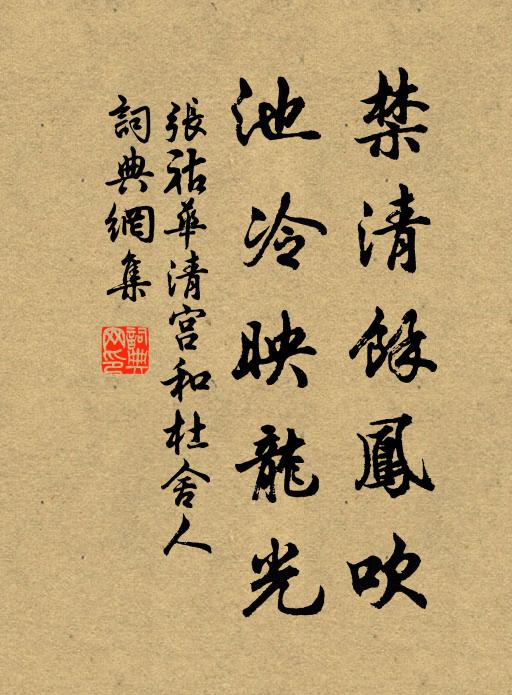 禁清餘鳳吹
池冷映龍光
張祜華清宮和杜舍人
詞典網集
詞典網印